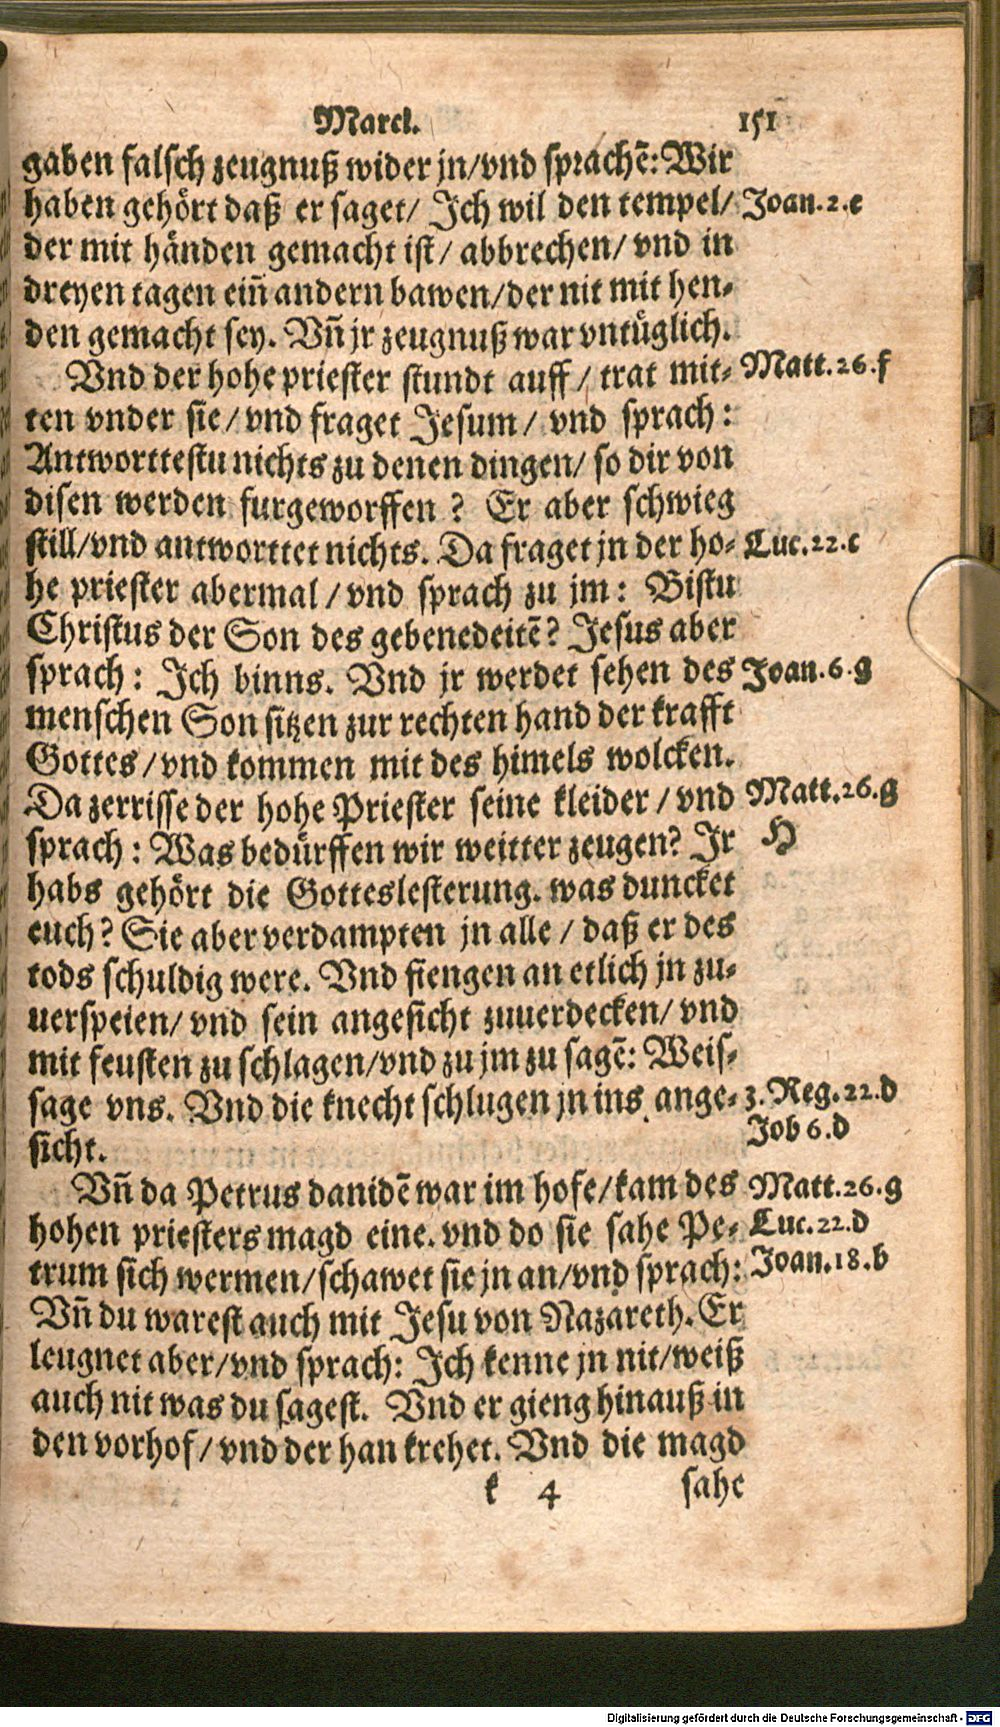 Marcł.
151
gaben falsch zeugnuß wider jn/vnd sprachē: Wir
haben gehört daß er saget/ Ich wil den tempel/ Joan.2.e
der mit händen gemacht ist/ abbrechen/ vnd in
dreyen tagen eiñ andern bawen/der nit mit hen-
den gemacht sey. Vñ jr zeugnuß war vntüglich.
Vnd der hohe priester stundt auff/ trat mit- Matt.26.f
ten vnder sie/ vnd fraget Jesum/ vnd sprach:
Antworttestu nichts zu denen dingen/ so dir von
disen werden furgeworffen? Er aber schwieg
still/vnd antworttet nichts. Da fraget jn der ho- Luc.22.c
he priester abermal/vnd sprach zu jm: Bistu
Christus der Son des gebenedeitē? Jesus aber
sprach: Ich binns. Vnd jr werdet sehen des Joan.6.g
menschen Son sitzen zur rechten hand der krafft
Gottes/vnd kommen mit des himels wolcken.
Da zerrisse der hohe Priester seine kleider/vnd Matt.26.g
sprach: Was bedürffen wir weitter zeugen? Ir H
habs gehört die Gotteslesterung. was duncket
euch? Sie aber verdampten jn alle/ daß er des
tods schuldig were. Vnd fiengen an etlich jn zu-
uerspeien/ vnd sein angesicht zuuerdecken/ vnd
mit feusten zu schlagen/vnd zu jm zu sagē: Weis-
sage vns. Vnd die knecht schlugen jn ins ange- 3.Reg.22.d
sicht. Job 6.d
Vñ da Petrus danidē war im hofe/kam des Matt.26.g
hohen priesters magd eine. vnd do sie sahe Pe- Luc.22.d
trum sich wermen/schawet sie jn an/vnd sprach: Joan.18.b
Vñ du warest auch mit Jesu von Nazareth. Er
leugnet aber/vnd sprach: Ich kenne jn nit/weiß
auch nit was du sagest. Vnd er gieng hinauß in
den vorhof/vnd der han krehet. Vnd die magd
k 4 sahe
Digitalisierung gefördert durch die Deutsche Forschungsgemeinschaft - DFG